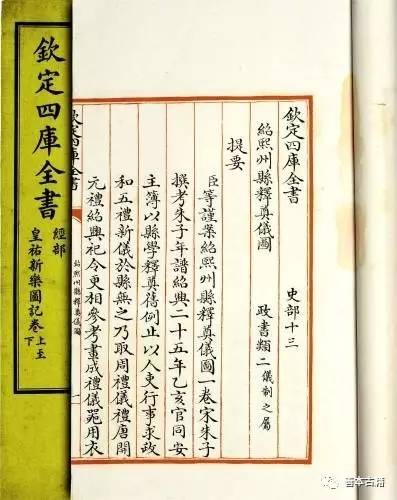 欽定四庫全書 史部十三
紹熙州縣釋奠儀圖 政書類二儀制之屬
提要
臣等謹案紹熙州縣釋奠儀圖一卷宋朱子
撰考朱子年譜紹興二十五年乙亥官同安
主簿以縣學釋奠舊例止以人吏行事求政
和五禮新儀於縣無之乃取周禮儀禮唐開
元禮紹興祀令更相參考畫成禮儀器用衣
欽定四庫全書
紹熙州縣釋奠儀圖
一
欽定四庫全書
經部
皇祐新樂圖記卷上至下
善本古籍